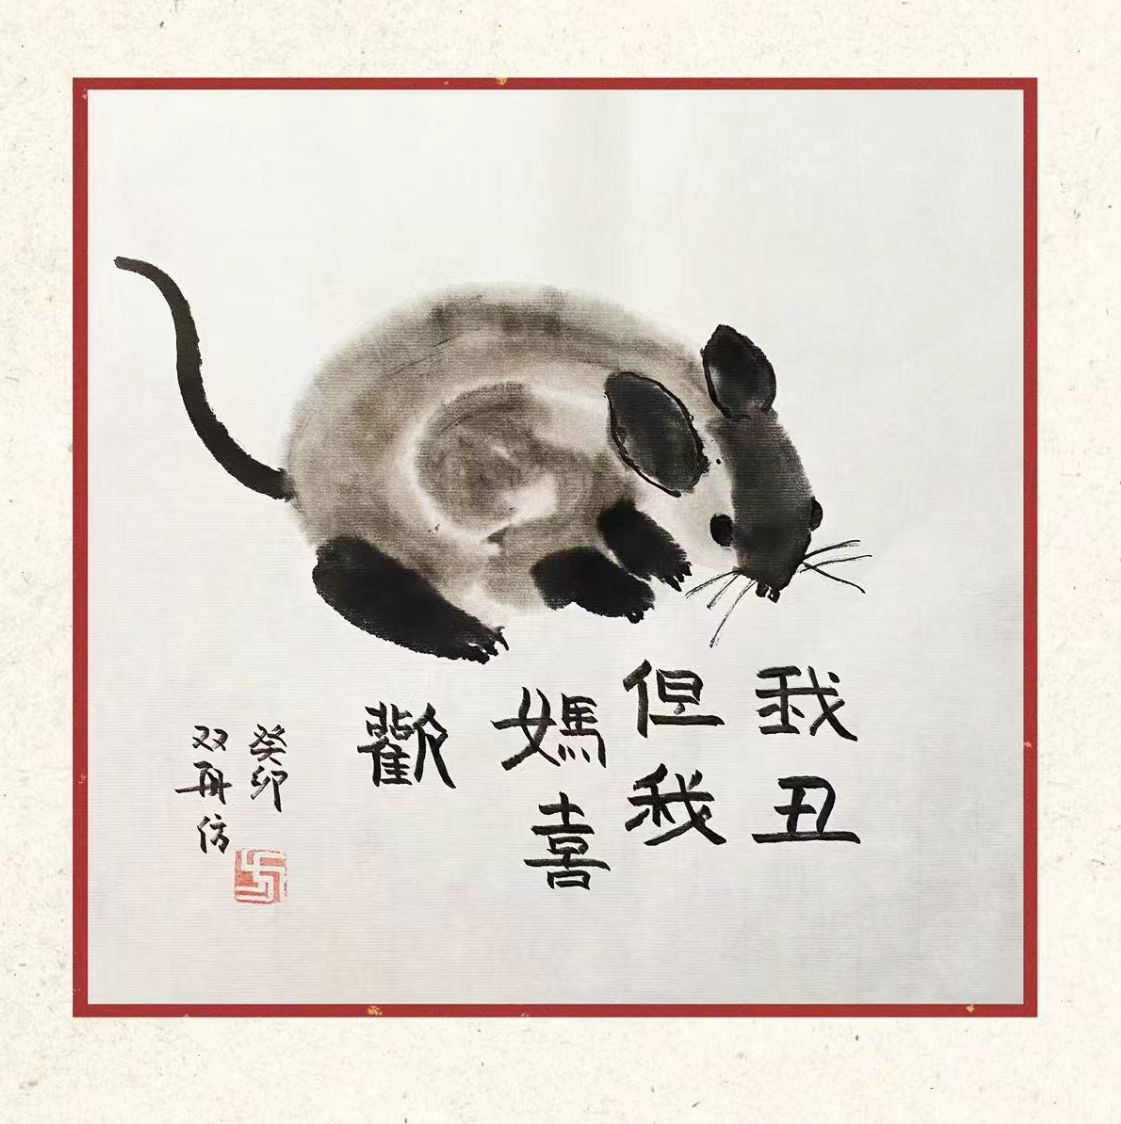 我丑
但我
媽喜
歡
癸卯
双再仿